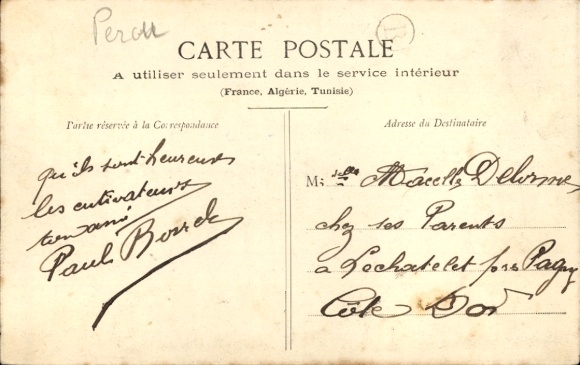 Perou
CARTE POSTALE
A utiliser seulement dans le service intérieur
(France, Algérie, Tunisie)
Partie réservée à la Correspondance
Adresse du Destinataire
qu'ils sont heureux
les cultivateurs
ton ami
Paul
M elle Marcelle Delorme
chez ses Parents
a Lechatelet près Pagny
Côte Dor